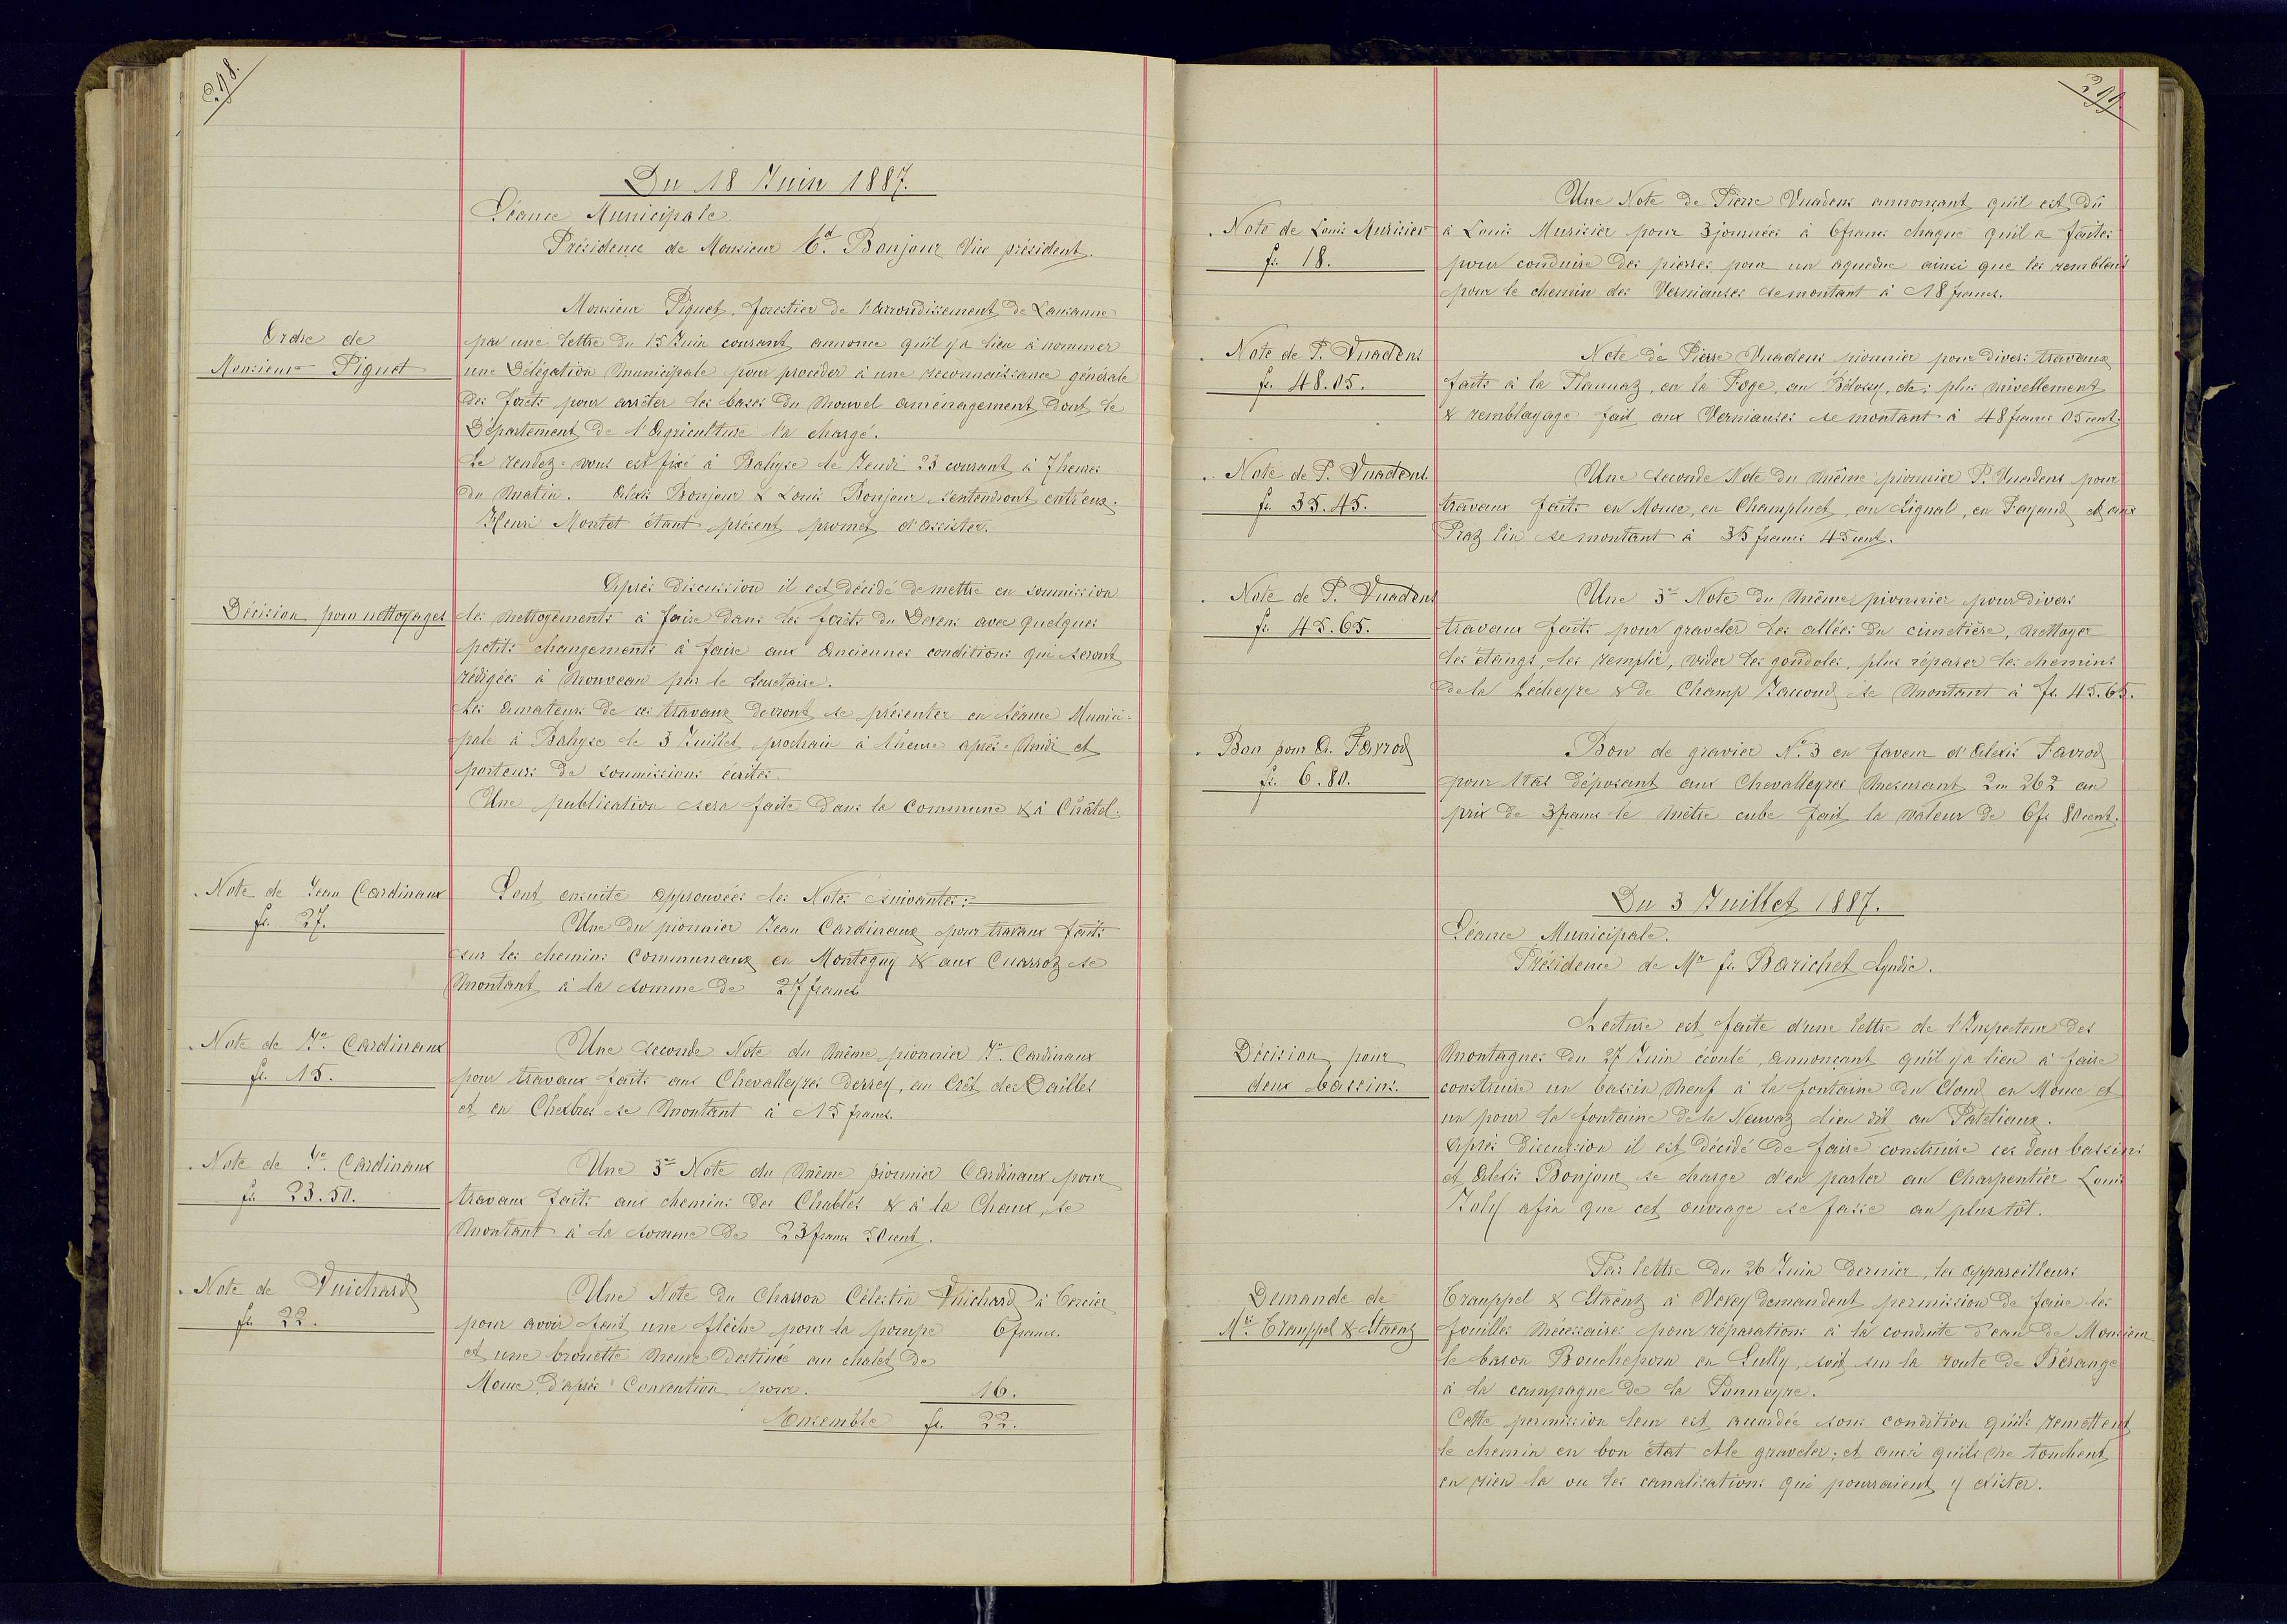 298.
Du 18 Juin 1887.
Séance Municipale.
Présidence de Monsieur Ed. Bonjour Vice président.
Ordre de
Monsieur Piguet
Monsieur Piguet, forestier de l'arrondissement de Lausanne
par une lettre du 15 Juin courant annonce qu'il y a lieu à nommer
une Délégation Municipale pour procéder à une reconnaissance générale
des forêts pour arrêter les bases du Nouvel aménagement dont le
Département de l'Agriculture l'a chargé.
Le rendez-vous est fixé à Bahyse le Jeudi 23 courant à 7 heures
du Matin. Alexis Bonjour & Louis Bonjour s'entendront entr'eux.
Henri Montet étant présent promet d'assister.
Décision pour nettoyages
Après discussion il est décidé de mettre en soumission
les Nettoyements à faire dans les forêts du Devens avec quelques
petits changements à faire aux Anciennes conditions qui seront
rédigées à Nouveau par le Secrétaire.
Les amateurs de ces travaux devront se présenter en séance Munici-
pale à Bahyse le 3 Juillet prochain à 1 heure après-Midi et
porteurs de soumissions écrites.
Une publication sera faite dans la Commune & à Châtel.
Note de Jean Cardinaux
fr. 27.
Sont ensuite approuvées les Notes suivantes:
Une du pionnier Jean Cardinaux pour travaux faits
sur les chemins Communaux en Monteguy & aux Cuarroz se
Montant à la somme de 27 francs.
Note de Jn. Cardinaux
fr. 15.
Une seconde Note du Même pionnier Jn. Cardinaux
pour travaux faits aux Chevalleyres derrey, au Crêt des Dailles
et en Chexbres se Montant à 15 francs.
Note de Jn. Cardinaux
fr. 23.50.
Une 3e Note du Même pionnier Cardinaux pour
travaux faits aux chemins des Chables & à la Chaux, se
Montant à la somme de 23 francs 50 cent.
Note de Vuichard
fr. 22.
Une Note du Charron Célestin Vuichard à Cercier
pour avoir fait une flèche pour la pompe 6 francs.
et une brouette Neuve destinée au chalet de
Mouce d'après Convention pour. 16.
Ensemble fr. 22.
299.
Note de Louis Murisier
fr. 18.
Une Note de Pierre Vuadens annonçant qu'il est dû
à Louis Murisier pour 3 journées à 6 francs chaque qu'il a faites
pour conduire des pierres pour un aqueduc ainsi que les remblais
pour le chemin des Verniauses se montant à 18 francs.
Note de P. Vuadens
fr. 48.05.
Note de Pierre Vuadens pionnier pour divers travaux
faits à la Plannaz, en la Foge, au Bélossy, etc; plus Nivellement
& remblayage fait aux Verniauses se montant à 48 francs 05 cent.
Note de P. Vuadens
fr. 35.45.
Une seconde Note du Même pionnier P. Vuadens pour
travaux faits en Mouce, en Champluet, au Signal, en Fayaud et aux
Praz lin se montant à 35 francs 45 cent.
Note de P. Vuadens
fr. 45.65.
Une 3e Note du Même pionnier pour divers
travaux faits pour graveler les allées du cimetière, Nettoyer
les étangs, les remplir, vider les gondoles, plus réparer les chemins
de la Lécheyre & de Champ Jaccoud se Montant à fr. 45.65.
Bon pour A. Favrod
fr. 6.80.
Bon de gravier No. 3 en faveur d'Alexis Favrod
pour 1 tas déposant aux Chevalleyres Mesurant 2m 262 au
prix de 3 francs le Mètre cube fait la valeur de 6 fr 80 cent.
Du 3 Juillet 1887.
Séance Municipale.
Présidence de Mr fs Barichet Syndic.
Décision pour
deux bassins.
Lecture est faite d'une lettre de l'Inspecteur des
Montagnes du 27 Juin écoulé, annonçant qu'il y a lieu à faire
construire un bassin Neuf à la fontaine du Cloud en Mouce et
un pour la fontaine de la Neuvaz lieu dit au Patetiaux.
Après discussion il est décidé de faire construire ces deux bassins
et Alexis Bonjour se charge d'en parler au Charpentier Louis
Joly afin que cet ouvrage se fasse au plus tôt.
Demande de
Mrs. Trauppel & Staenz
Par lettre du 26 Juin dernier, les Appareilleurs
Trauppel & Staenz à Vevey demandent permission de faire les
fouilles Nécessaires pour réparations à la conduite d'eau de Monsieur
le baron Boucheporn en Sully, soit sur la route de Bérange
à la campagne de la Ponneyre.
Cette permission leur est accordée sous condition qu'ils remettent
le chemin en bon état et le graveler; et aussi qu'ils Ne touchent
en rien la ou les canalisations qui pourraient y exister.